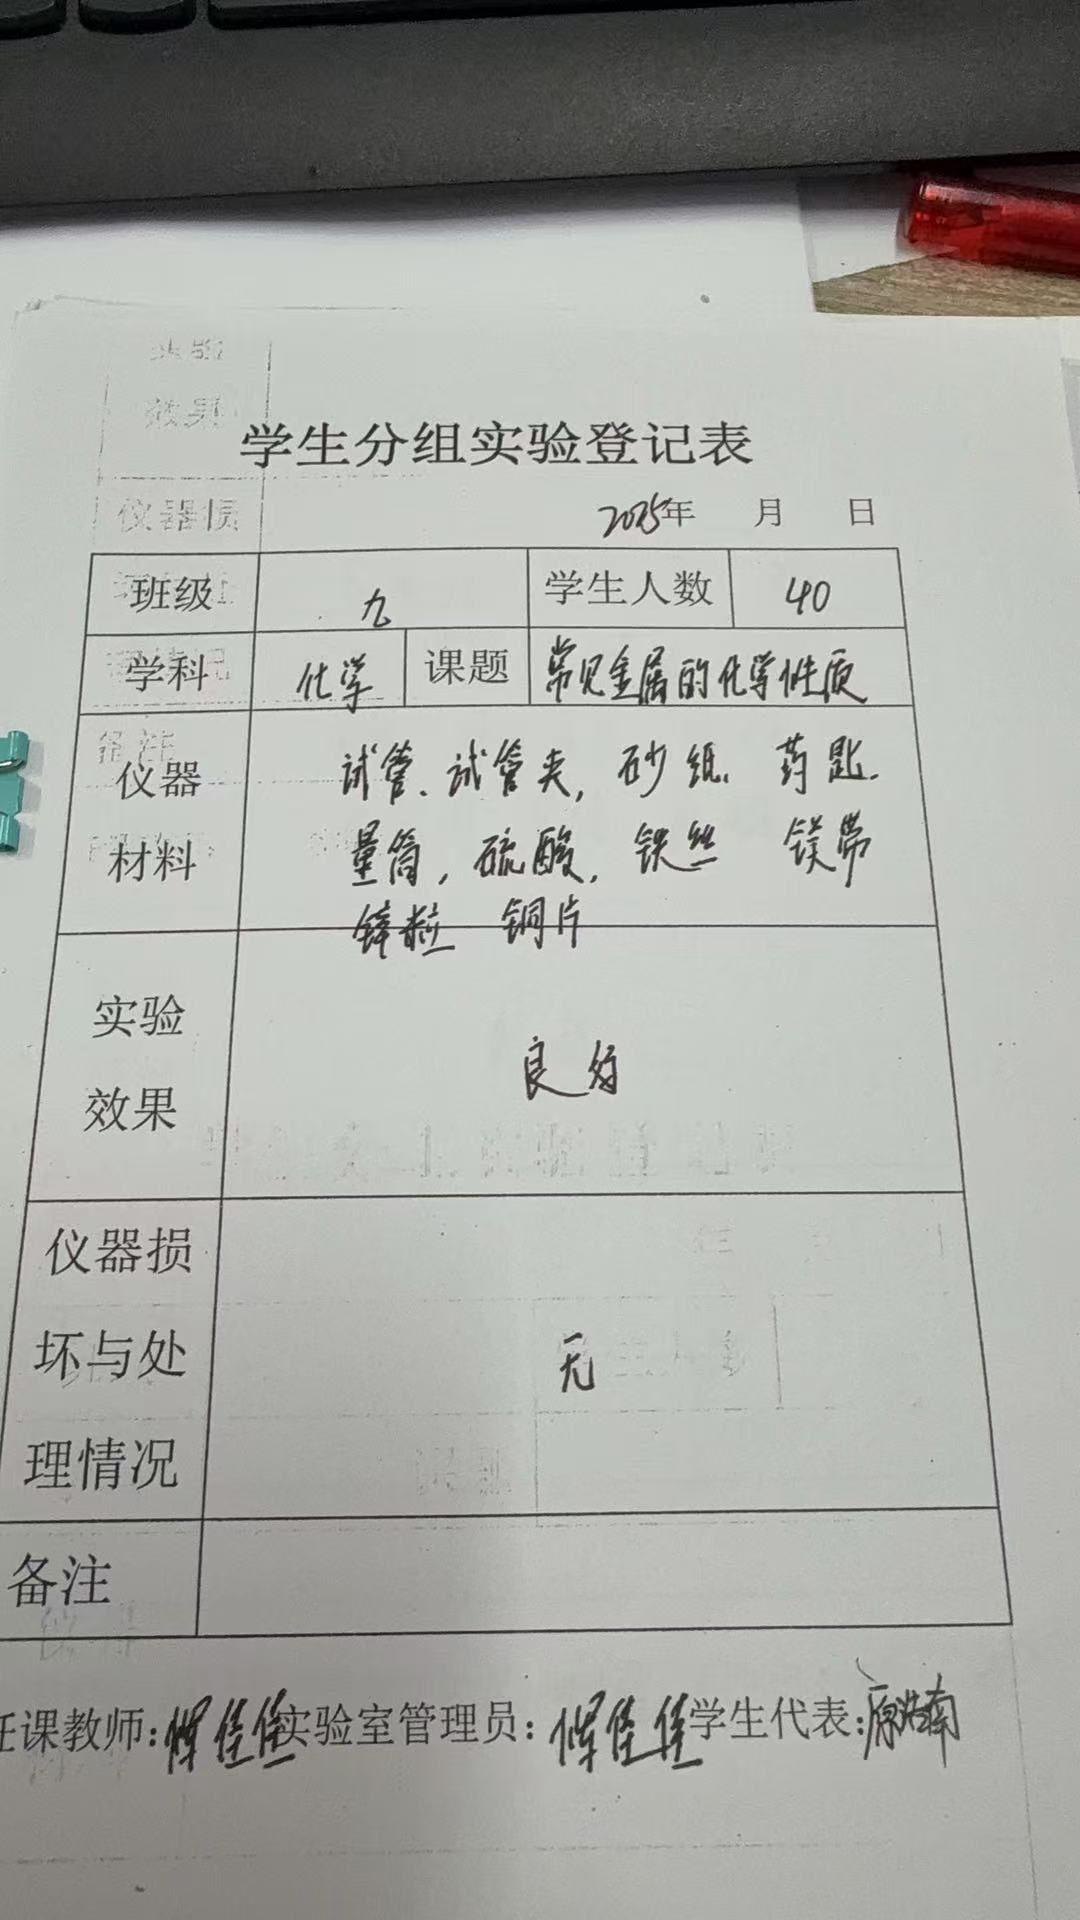 学生分组实验登记表
2025年 月 日
班级 九 学生人数 40
学科 化学 课题 常见金属的化学性质
仪器材料 试管、试管夹, 砂纸、药匙、
量筒, 硫酸, 铁丝 镁带
锌粒 铜片
实验
效果
良好
仪器损
坏与处
理情况
无
备注
任课教师: 佳佳 实验室管理员: 佳佳 学生代表: 原浩南